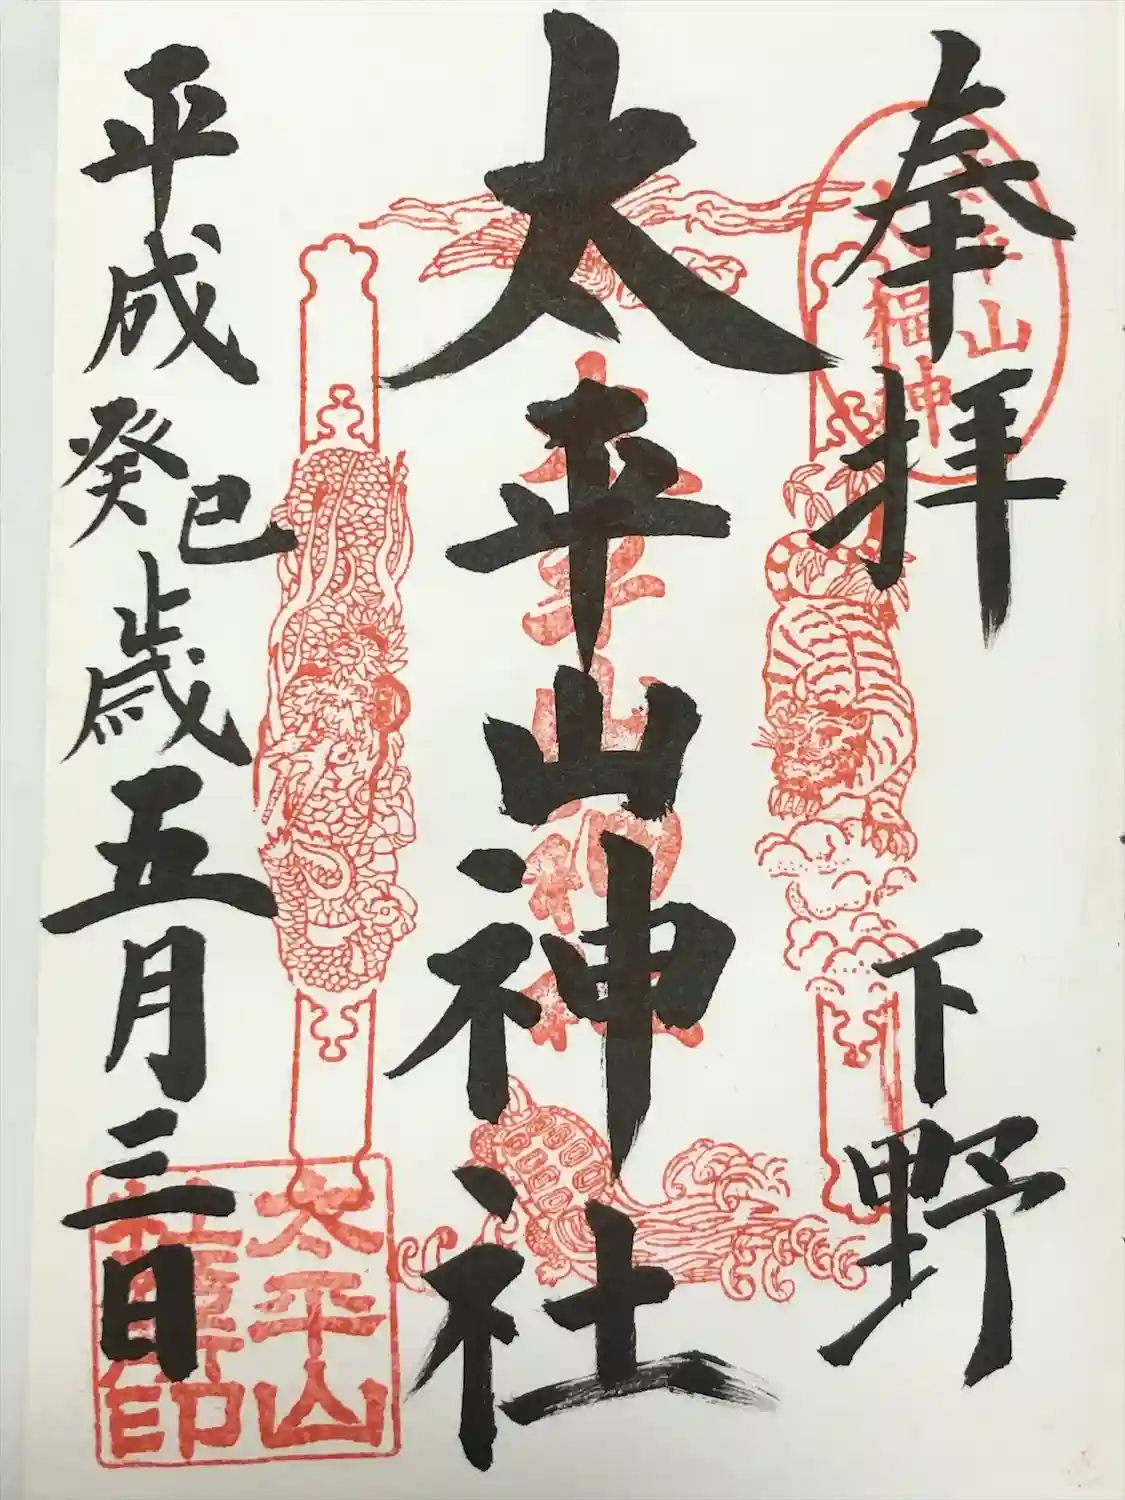 奉拝
下野
太平山神社
平成癸巳歳五月三日
山
福神
太平山
社務所印